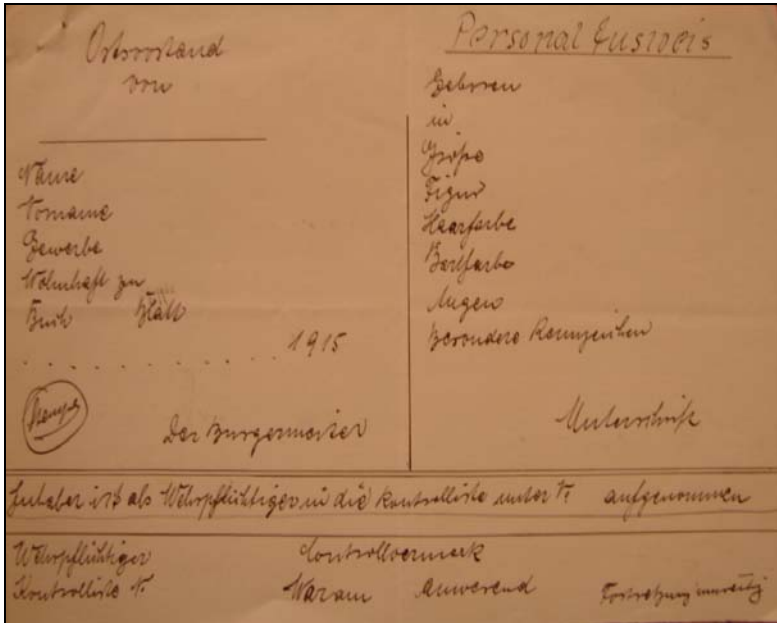 Ortsvorstand
von
Name
Vorname
Gewerbe
Wohnhaft zu
Buch Blatt
. . . . . . . . . . . 1915
Stempel
Der Burgermeister
Personal Ausweis
Geboren
in
Größe
Figur
Haarfarbe
Bartfarbe
Augen
Besondere Kennzeichen
Unterschrift
Inhaber ist als Wehrpflichtiger in die Kontrolliste unter N. aufgenommen
Wehrpflichtiger Controllvermerk
Kontrolliste N. Warum Anwesend Fortsetzung